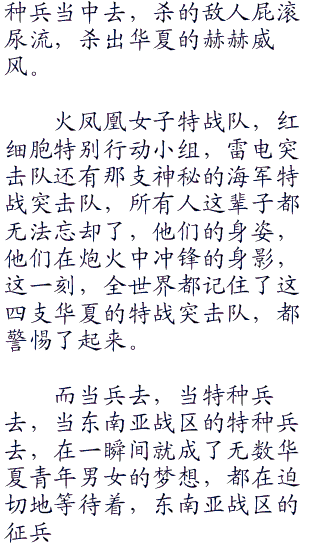 种兵当中去，杀的敌人屁滚
尿流，杀出华夏的赫赫威
风。
火凤凰女子特战队，红
细胞特别行动小组，雷电突
击队还有那支神秘的海军特
战突击队，所有人这辈子都
无法忘却了，他们的身姿，
他们在炮火中冲锋的身影，
这一刻，全世界都记住了这
四支华夏的特战突击队，都
警惕了起来。
而当兵去，当特种兵
去，当东南亚战区的特种兵
去，在一瞬间就成了无数华
夏青年男女的梦想，都在迫
切地等待着，东南亚战区的
征兵